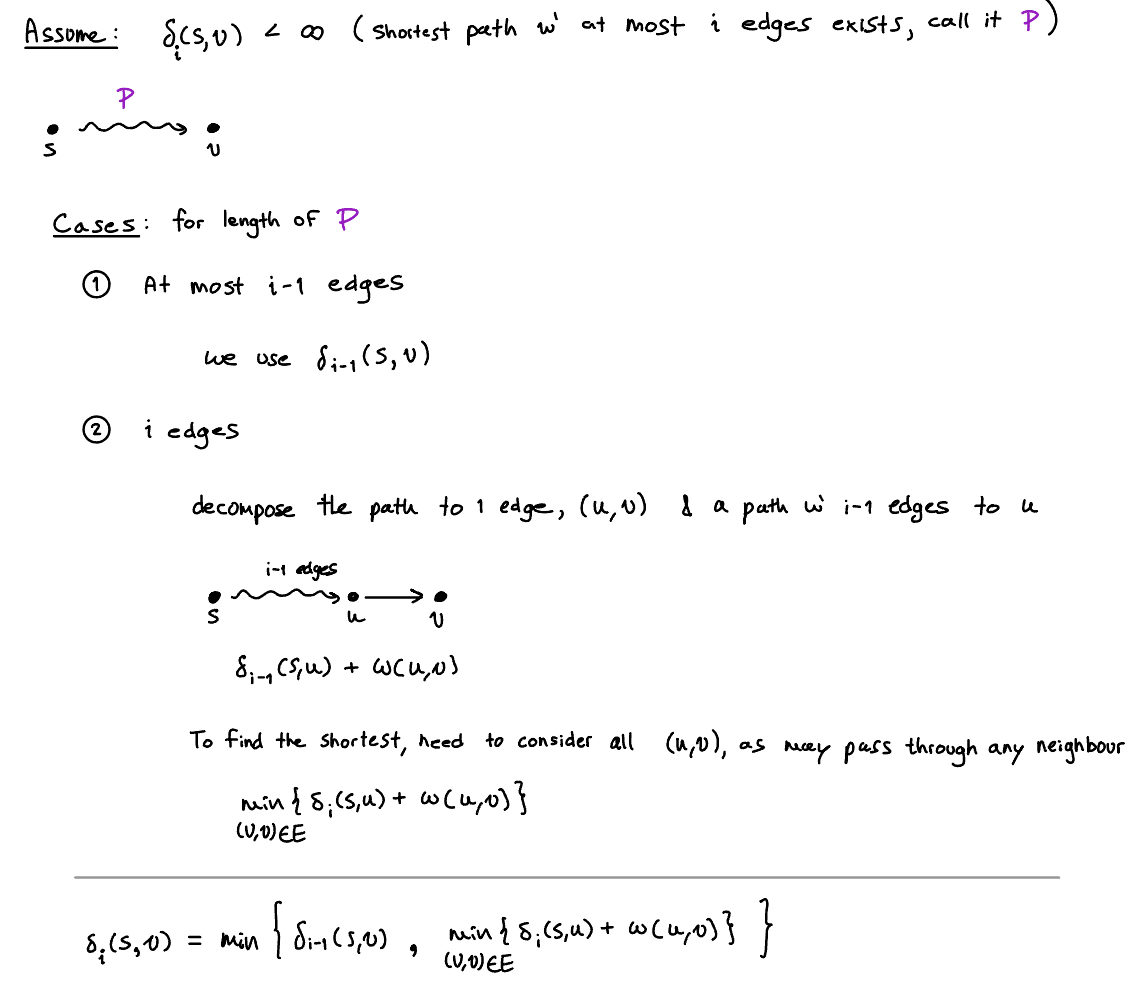 Assume: δᵢ(s,v) < ∞ (shortest path w' at most i edges exists, call it P)
P
s v
Cases: for length of P
① At most i-1 edges
we use δᵢ₋₁(s,v)
② i edges
decompose the path to 1 edge, (u,v) & a path w' i-1 edges to u
i-1 edges
s u v
δᵢ₋₁(s,u) + w(u,v)
To find the shortest, need to consider all (u,v), as may pass through any neighbour
min{ δᵢ(s,u) + w(u,v) }
(u,v)∈E
δᵢ(s,v) = min { δᵢ₋₁(s,v) , min{ δᵢ(s,u) + w(u,v) } }
(u,v)∈E